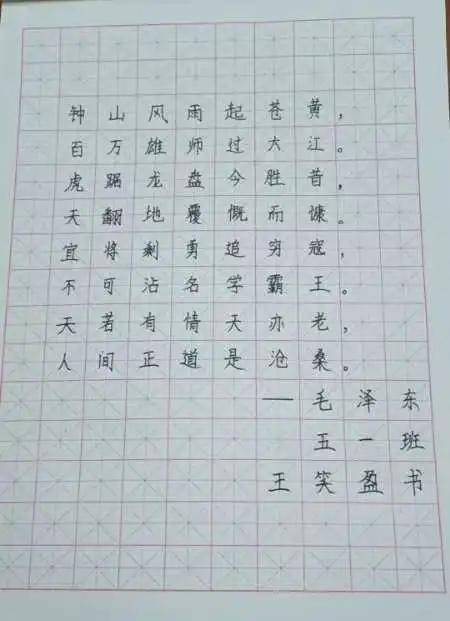 钟山风雨起苍黄，
百万雄师过大江。
虎踞龙盘今胜昔，
天翻地覆慨而慷。
宜将剩勇追穷寇，
不可沽名学霸王。
天若有情天亦老，
人间正道是沧桑。
——毛泽东
五一班
王笑盈书